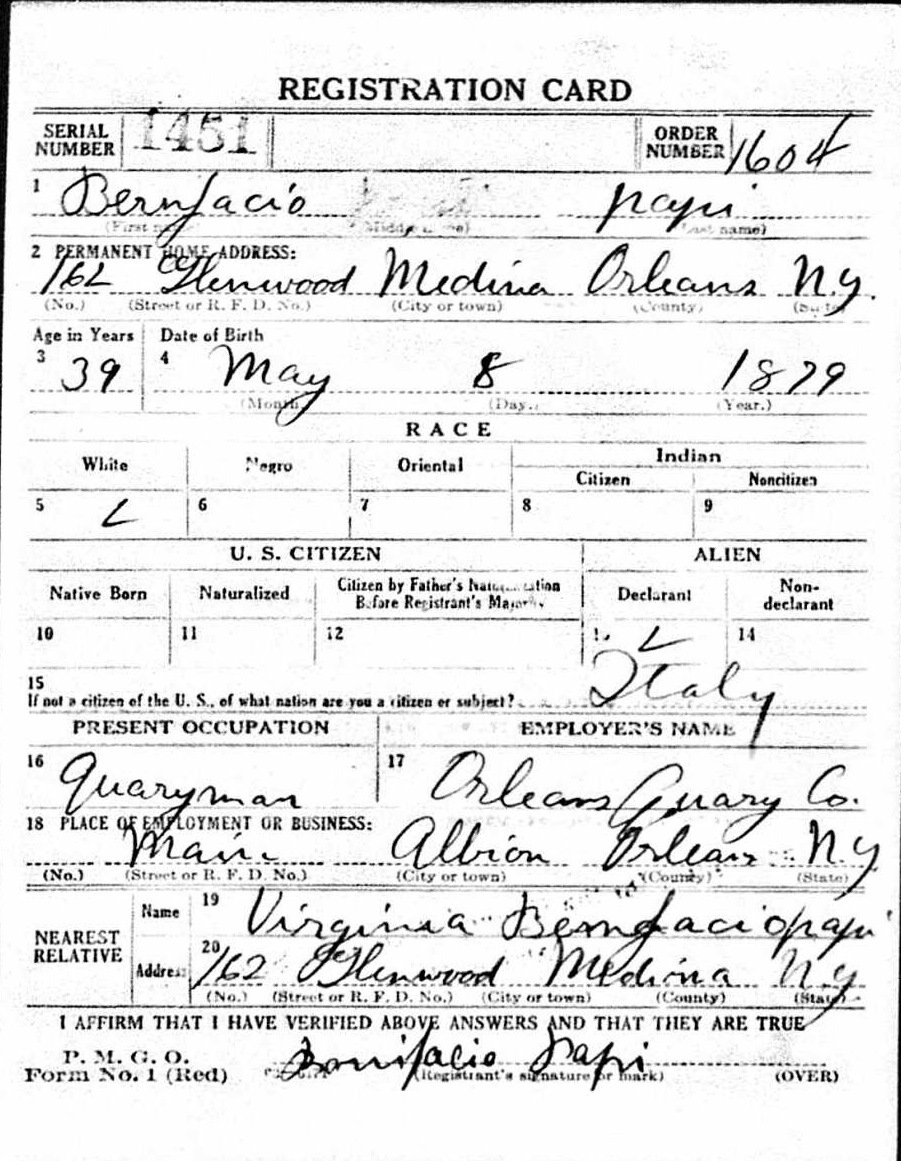 REGISTRATION CARD
SERIAL NUMBER 1451 ORDER NUMBER 1604
1 Bernfacio Papi
(First name) (Middle name) (Last name)
2 PERMANENT HOME ADDRESS:
162 Glenwood Medina Orleans N.y.
(No.) (Street or R. F. D. No.) (City or town) (County) (State)
Age in Years Date of Birth
3 39 4 May 8 1879
(Month.) (Day.) (Year.)
RACE
White Negro Oriental Indian
Citizen Noncitizen
5 6 7 8 9
U. S. CITIZEN ALIEN
Native Born Naturalized Citizen by Father's Naturalization Before Registrant's Majority Declarant Non-declarant
10 11 12 13 14
15 If not a citizen of the U. S., of what nation are you a citizen or subject? Italy
PRESENT OCCUPATION EMPLOYER'S NAME
16 Quaryman 17 Orleans Quary Co.
18 PLACE OF EMPLOYMENT OR BUSINESS:
Main Albion Orleans N.y
(No.) (Street or R. F. D. No.) (City or town) (County) (State)
NEAREST RELATIVE Name 19 Virginia Bernfaciopapi
Address 20 162 Glenwood Medina N.y
(No.) (Street or R. F. D. No.) (City or town) (County) (State)
I AFFIRM THAT I HAVE VERIFIED ABOVE ANSWERS AND THAT THEY ARE TRUE
P. M. G. O.
Form No. 1 (Red) Bonifacio Papi
(Registrant's signature or mark) (OVER)